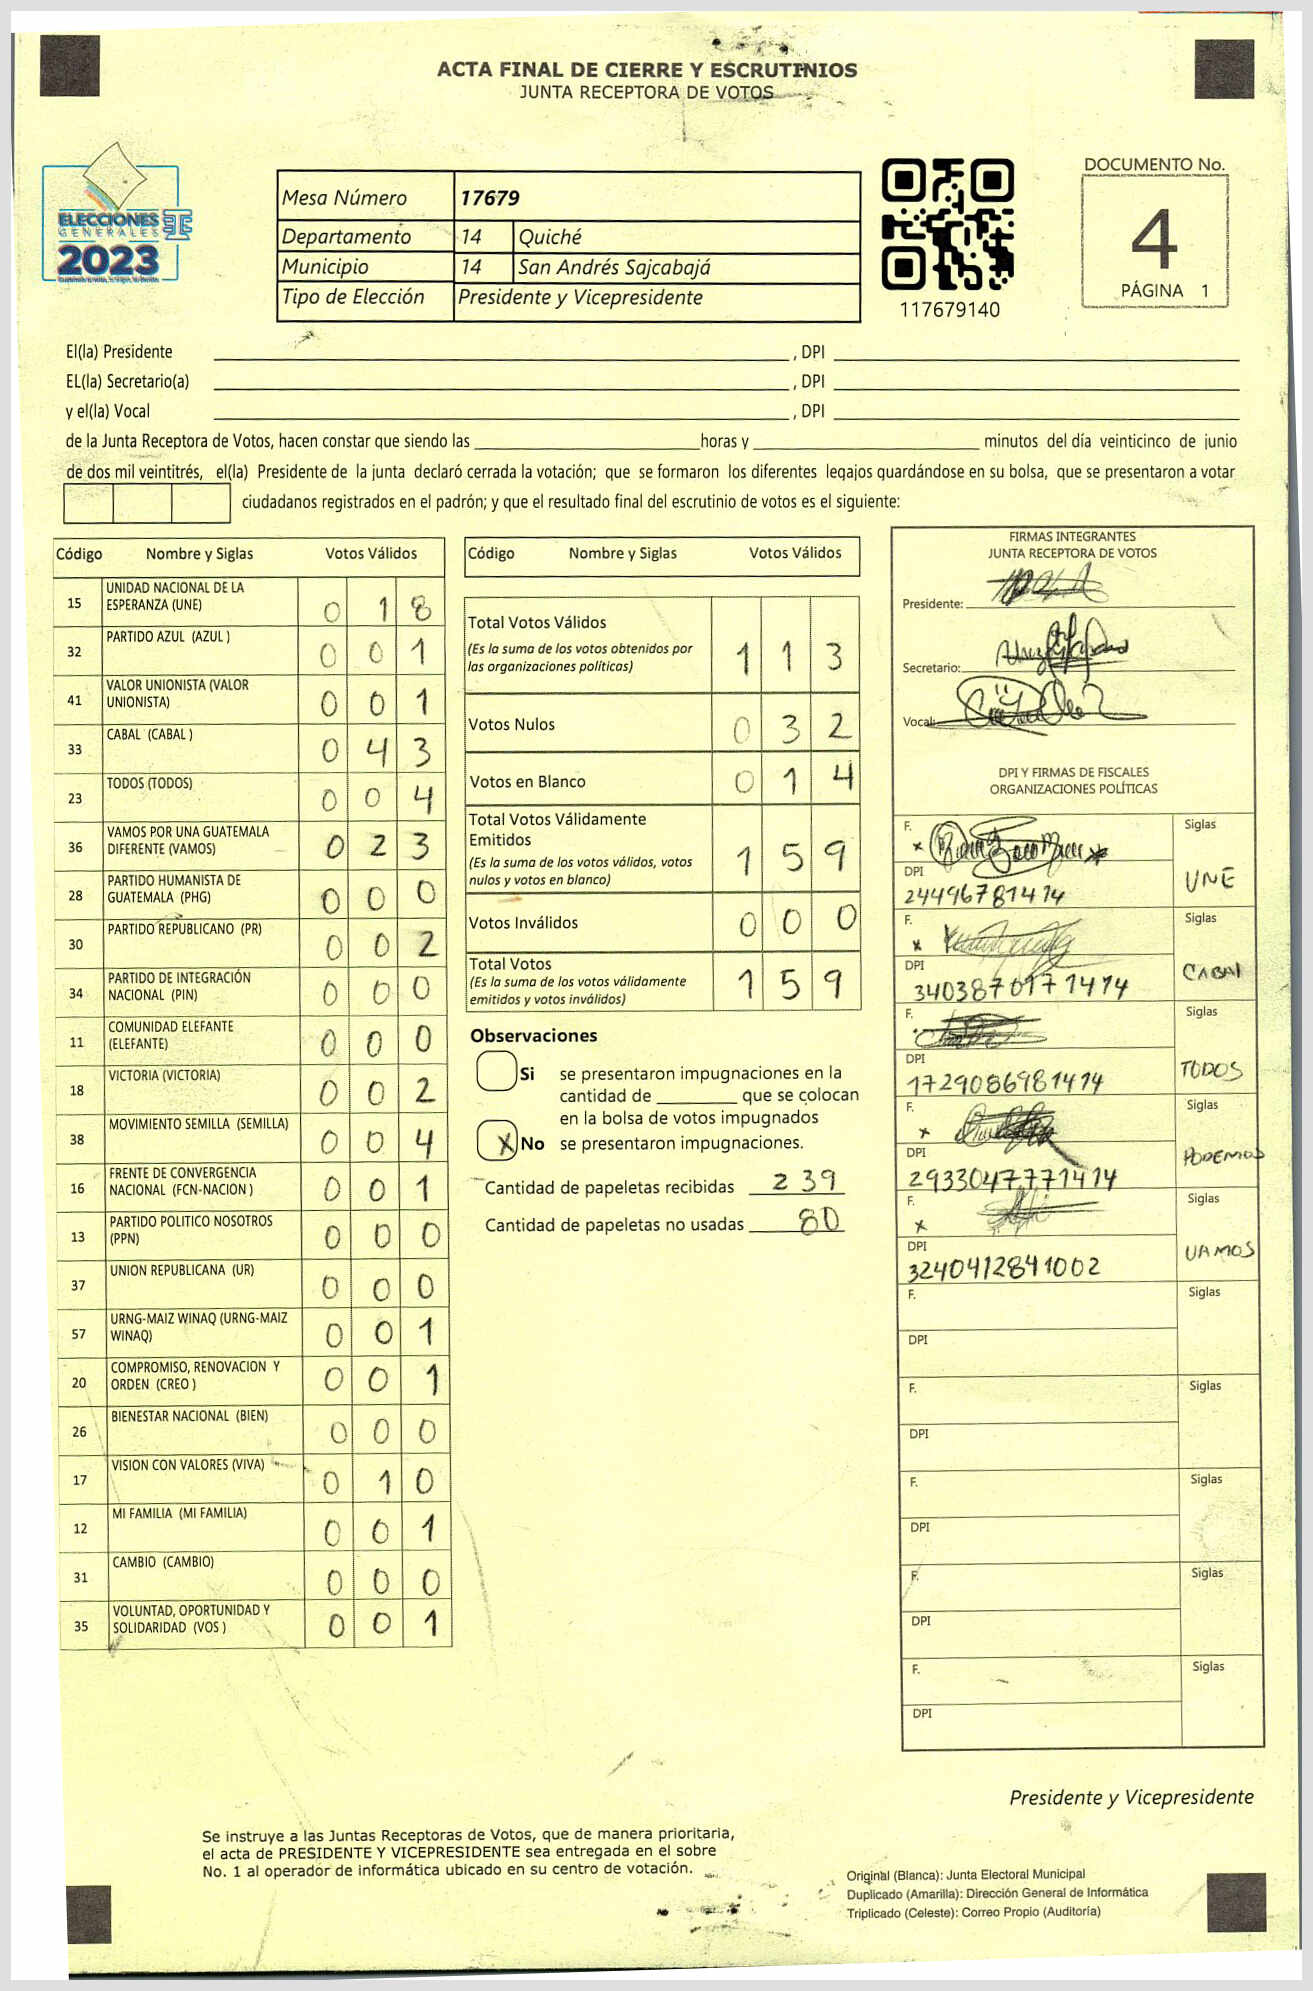 ACTA FINAL DE CIERRE Y ESCRUTINIOS
JUNTA RECEPTORA DE VOTOS
ELECCIONES
GENERALES
2023
Mesa Número 17679
Departamento 14 Quiché
Municipio 14 San Andrés Sajcabajá
Tipo de Elección Presidente y Vicepresidente
117679140
DOCUMENTO No.
4
PÁGINA 1
El(la) Presidente , DPI
EL(la) Secretario(a) , DPI
y el(la) Vocal , DPI
de la Junta Receptora de Votos, hacen constar que siendo las horas y minutos del día veinticinco de junio
de dos mil veintitrés, el(la) Presidente de la junta declaró cerrada la votación; que se formaron los diferentes legajos quardándose en su bolsa, que se presentaron a votar
ciudadanos registrados en el padrón; y que el resultado final del escrutinio de votos es el siguiente:
Código Nombre y Siglas Votos Válidos
15 UNIDAD NACIONAL DE LA
ESPERANZA (UNE) 0 1 8
32 PARTIDO AZUL (AZUL ) 0 0 1
41 VALOR UNIONISTA (VALOR
UNIONISTA) 0 0 1
33 CABAL (CABAL ) 0 4 3
23 TODOS (TODOS) 0 0 4
36 VAMOS POR UNA GUATEMALA
DIFERENTE (VAMOS) 0 2 3
28 PARTIDO HUMANISTA DE
GUATEMALA (PHG) 0 0 0
30 PARTIDO REPUBLICANO (PR) 0 0 2
34 PARTIDO DE INTEGRACIÓN
NACIONAL (PIN) 0 0 0
11 COMUNIDAD ELEFANTE
(ELEFANTE) 0 0 0
18 VICTORIA (VICTORIA) 0 0 2
38 MOVIMIENTO SEMILLA (SEMILLA) 0 0 4
16 FRENTE DE CONVERGENCIA
NACIONAL (FCN-NACION ) 0 0 1
13 PARTIDO POLITICO NOSOTROS
(PPN) 0 0 0
37 UNION REPUBLICANA (UR) 0 0 0
57 URNG-MAIZ WINAQ (URNG-MAIZ
WINAQ) 0 0 1
20 COMPROMISO, RENOVACION Y
ORDEN (CREO ) 0 0 1
26 BIENESTAR NACIONAL (BIEN) 0 0 0
17 VISION CON VALORES (VIVA) 0 1 0
12 MI FAMILIA (MI FAMILIA) 0 0 1
31 CAMBIO (CAMBIO) 0 0 0
35 VOLUNTAD, OPORTUNIDAD Y
SOLIDARIDAD (VOS ) 0 0 1
Código Nombre y Siglas Votos Válidos
Total Votos Válidos
(Es la suma de los votos obtenidos por
las organizaciones políticas) 1 1 3
Votos Nulos 0 3 2
Votos en Blanco 0 1 4
Total Votos Válidamente
Emitidos
(Es la suma de los votos válidos, votos
nulos y votos en blanco) 1 5 9
Votos Inválidos 0 0 0
Total Votos
(Es la suma de los votos válidamente
emitidos y votos inválidos) 1 5 9
Observaciones
Si se presentaron impugnaciones en la
cantidad de que se colocan
en la bolsa de votos impugnados
X No se presentaron impugnaciones.
Cantidad de papeletas recibidas 2 39
Cantidad de papeletas no usadas 80
FIRMAS INTEGRANTES
JUNTA RECEPTORA DE VOTOS
Presidente:
Secretario:
Vocal:
DPI Y FIRMAS DE FISCALES
ORGANIZACIONES POLÍTICAS
F. x Siglas
DPI UNE
24496781414
F. x Siglas
DPI CABAl
3403870171414
F. Siglas
DPI TODOS
1729086981414
F. x Siglas
DPI PODEMOS
2933047771414
F. x Siglas
DPI VAMOS
3240412841002
F. Siglas
DPI
F. Siglas
DPI
F. Siglas
DPI
F. Siglas
DPI
F. Siglas
DPI
Presidente y Vicepresidente
Se instruye a las Juntas Receptoras de Votos, que de manera prioritaria,
el acta de PRESIDENTE Y VICEPRESIDENTE sea entregada en el sobre
No. 1 al operador de informática ubicado en su centro de votación.
Original (Blanca): Junta Electoral Municipal
Duplicado (Amarilla): Dirección General de Informática
Triplicado (Celeste): Correo Propio (Auditoría)